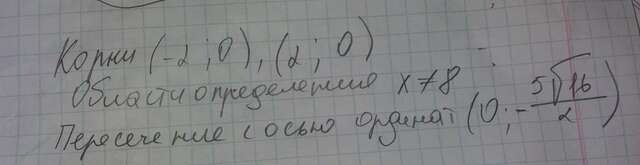 Корни (-2; 0), (2; 0)
Области определения x ≠ 8
Пересечение с осью ординат (0; -\frac{5\sqrt{16}}{2})